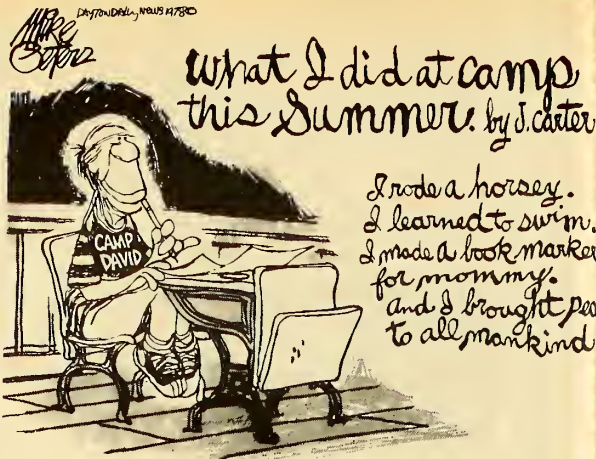 DAYTON DAILY NEWS 1978©
Mike
Peters
What I did at camp
this Summer. by J. Carter
I rode a horsey.
I learned to swim.
I made a book marker
for mommy.
and I brought pea
to all mankind
CAMP
DAVID